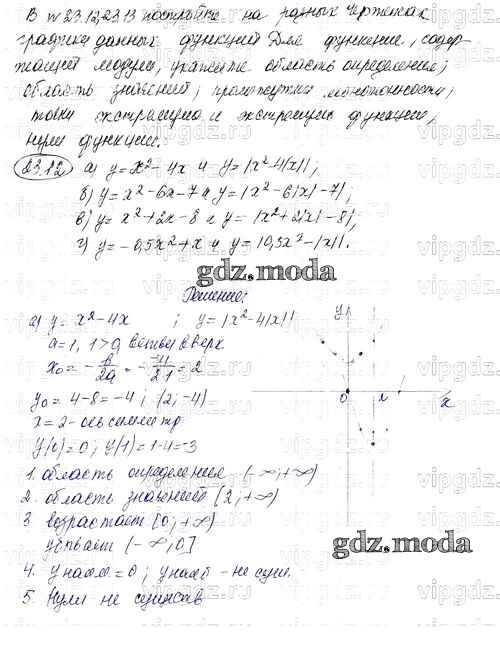 В № 23.12-23.13 постройте на разных чертежах
графики данных функций. Для функции, содер-
жащей модуль, укажите область определения;
область значений; промежутки монотонности;
точки экстремума и экстремумы функции;
нули функции.
23.12 а) y = x² - 4x и y = |x² - 4|x||;
б) y = x² - 6x - 7 и y = |x² - 6|x| - 7|;
в) y = x² + 2x - 8 и y = |x² + 2|x| - 8|;
г) y = -0,5x² + x и y = |0,5x² - |x||.
gdz.moda
Решение:
а) y = x² - 4x ; y = |x² - 4|x||
a = 1, 1 > 0, ветви вверх
x₀ = -b/2a = -(-4)/2·1 = 2
y₀ = 4 - 8 = -4; (2; -4)
x = 2 - ось симметр
y(0) = 0; y(1) = 1 - 4 = -3
y
0
x
1. область определения (-∞; +∞)
2. область значений [2; +∞)
3. возрастает [0; +∞)
убывает (-∞; 0]
gdz.moda
4. y наим = 0; y наиб - не сущ.
5. Нули не